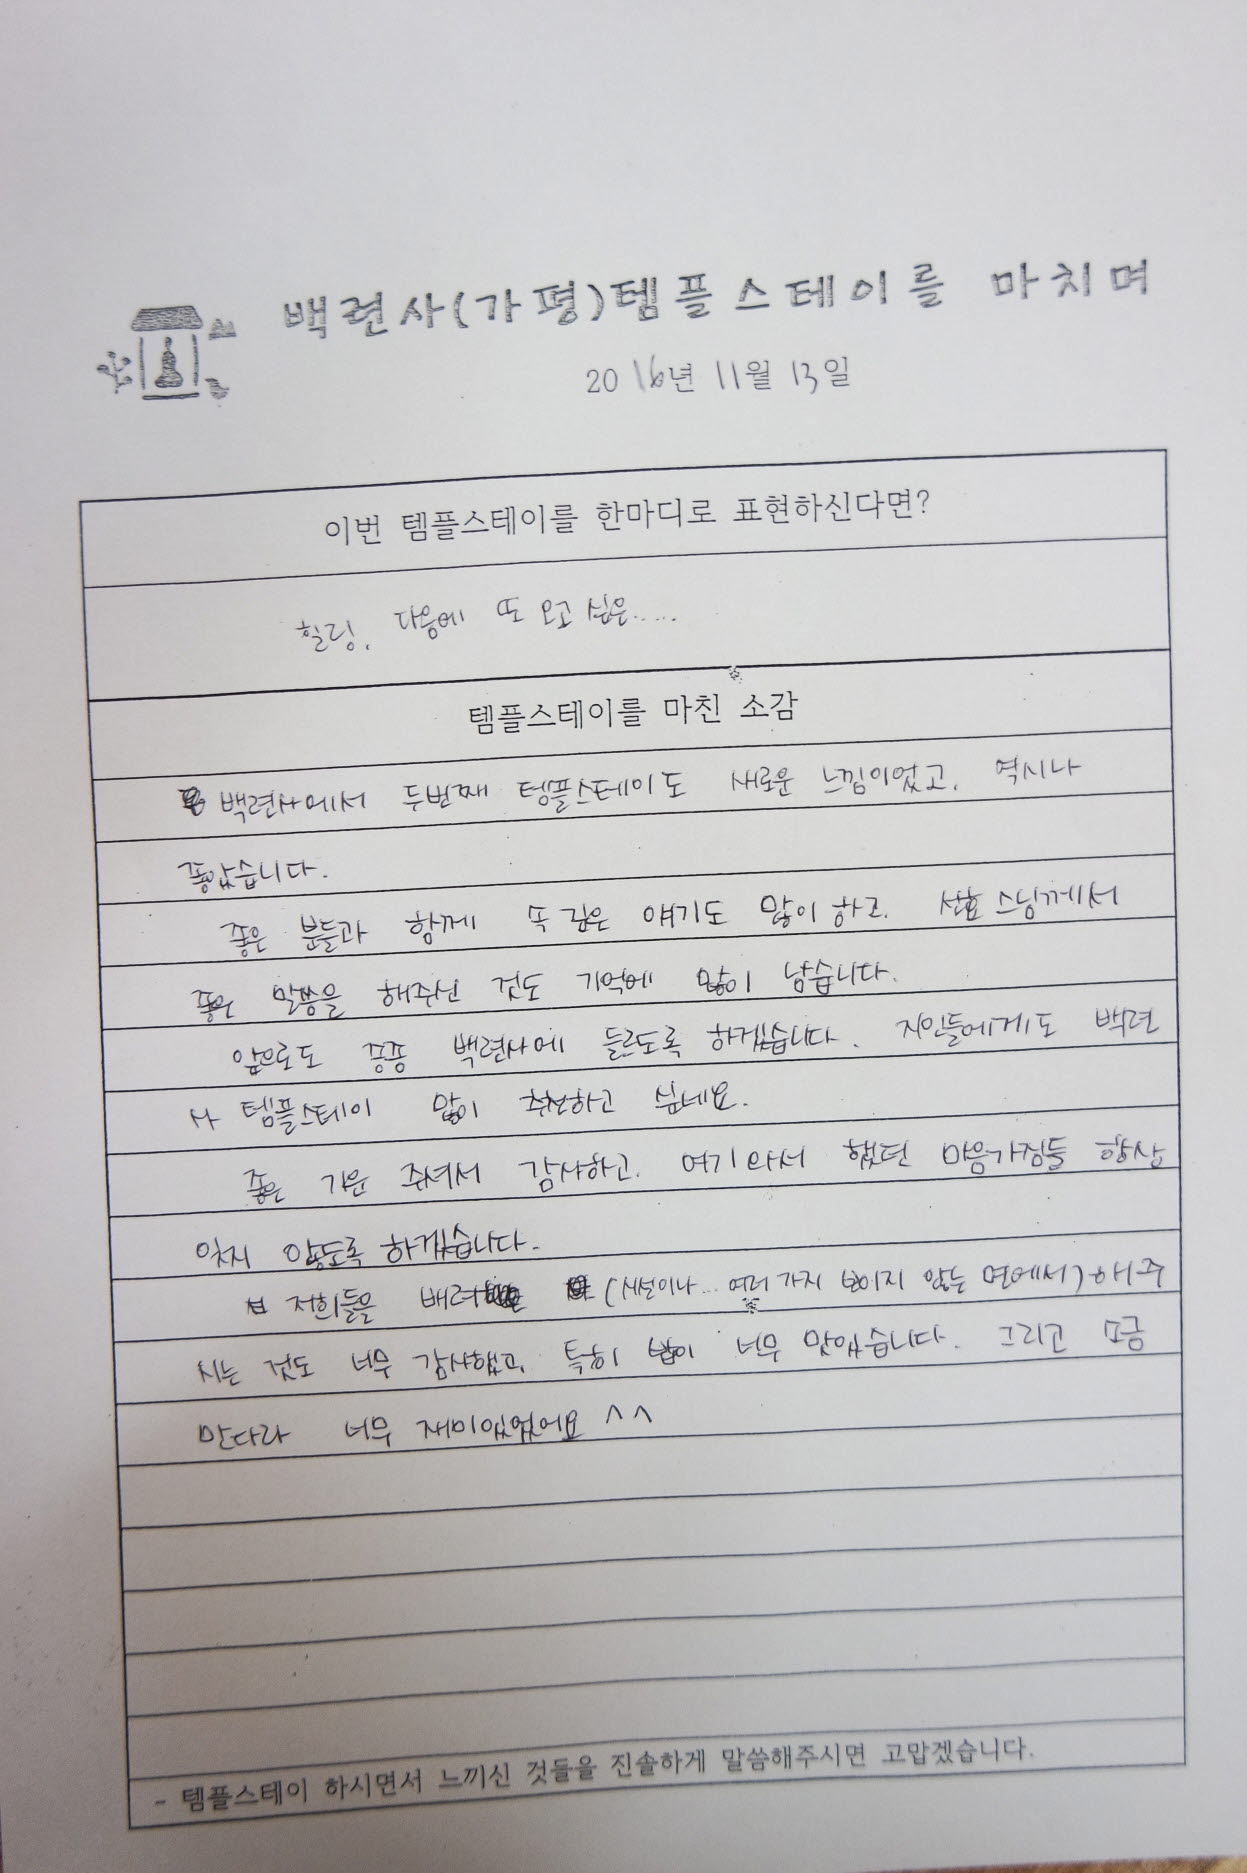 백련사(가평)템플스테이를 마치며
2016년 11월 13일
이번 템플스테이를 한마디로 표현하신다면?
힐링, 다음에 또 오고 싶은.....
템플스테이를 마친 소감
백련사에서 두번째 템플스테이도 새로운 느낌이었고, 역시나
좋았습니다.
좋은 분들과 함께 속 깊은 얘기도 많이 하고, 선효 스님께서
좋은 말씀을 해주신 것도 기억에 많이 남습니다.
앞으로도 종종 백련사에 들르도록 하겠습니다. 지인들에게도 백련
사 템플스테이 많이 추천하고 싶네요.
좋은 기운 주셔서 감사하고, 여기 와서 했던 마음가짐들 항상
잊지 않도록 하겠습니다.
저희들을 배려 (시선이나... 여러 가지 보이지 않는 면에서) 해주
시는 것도 너무 감사했고, 특히 밥이 너무 맛있습니다. 그리고 모금
만다라 너무 재미있었어요 ^^
- 템플스테이 하시면서 느끼신 것들을 진솔하게 말씀해주시면 고맙겠습니다.